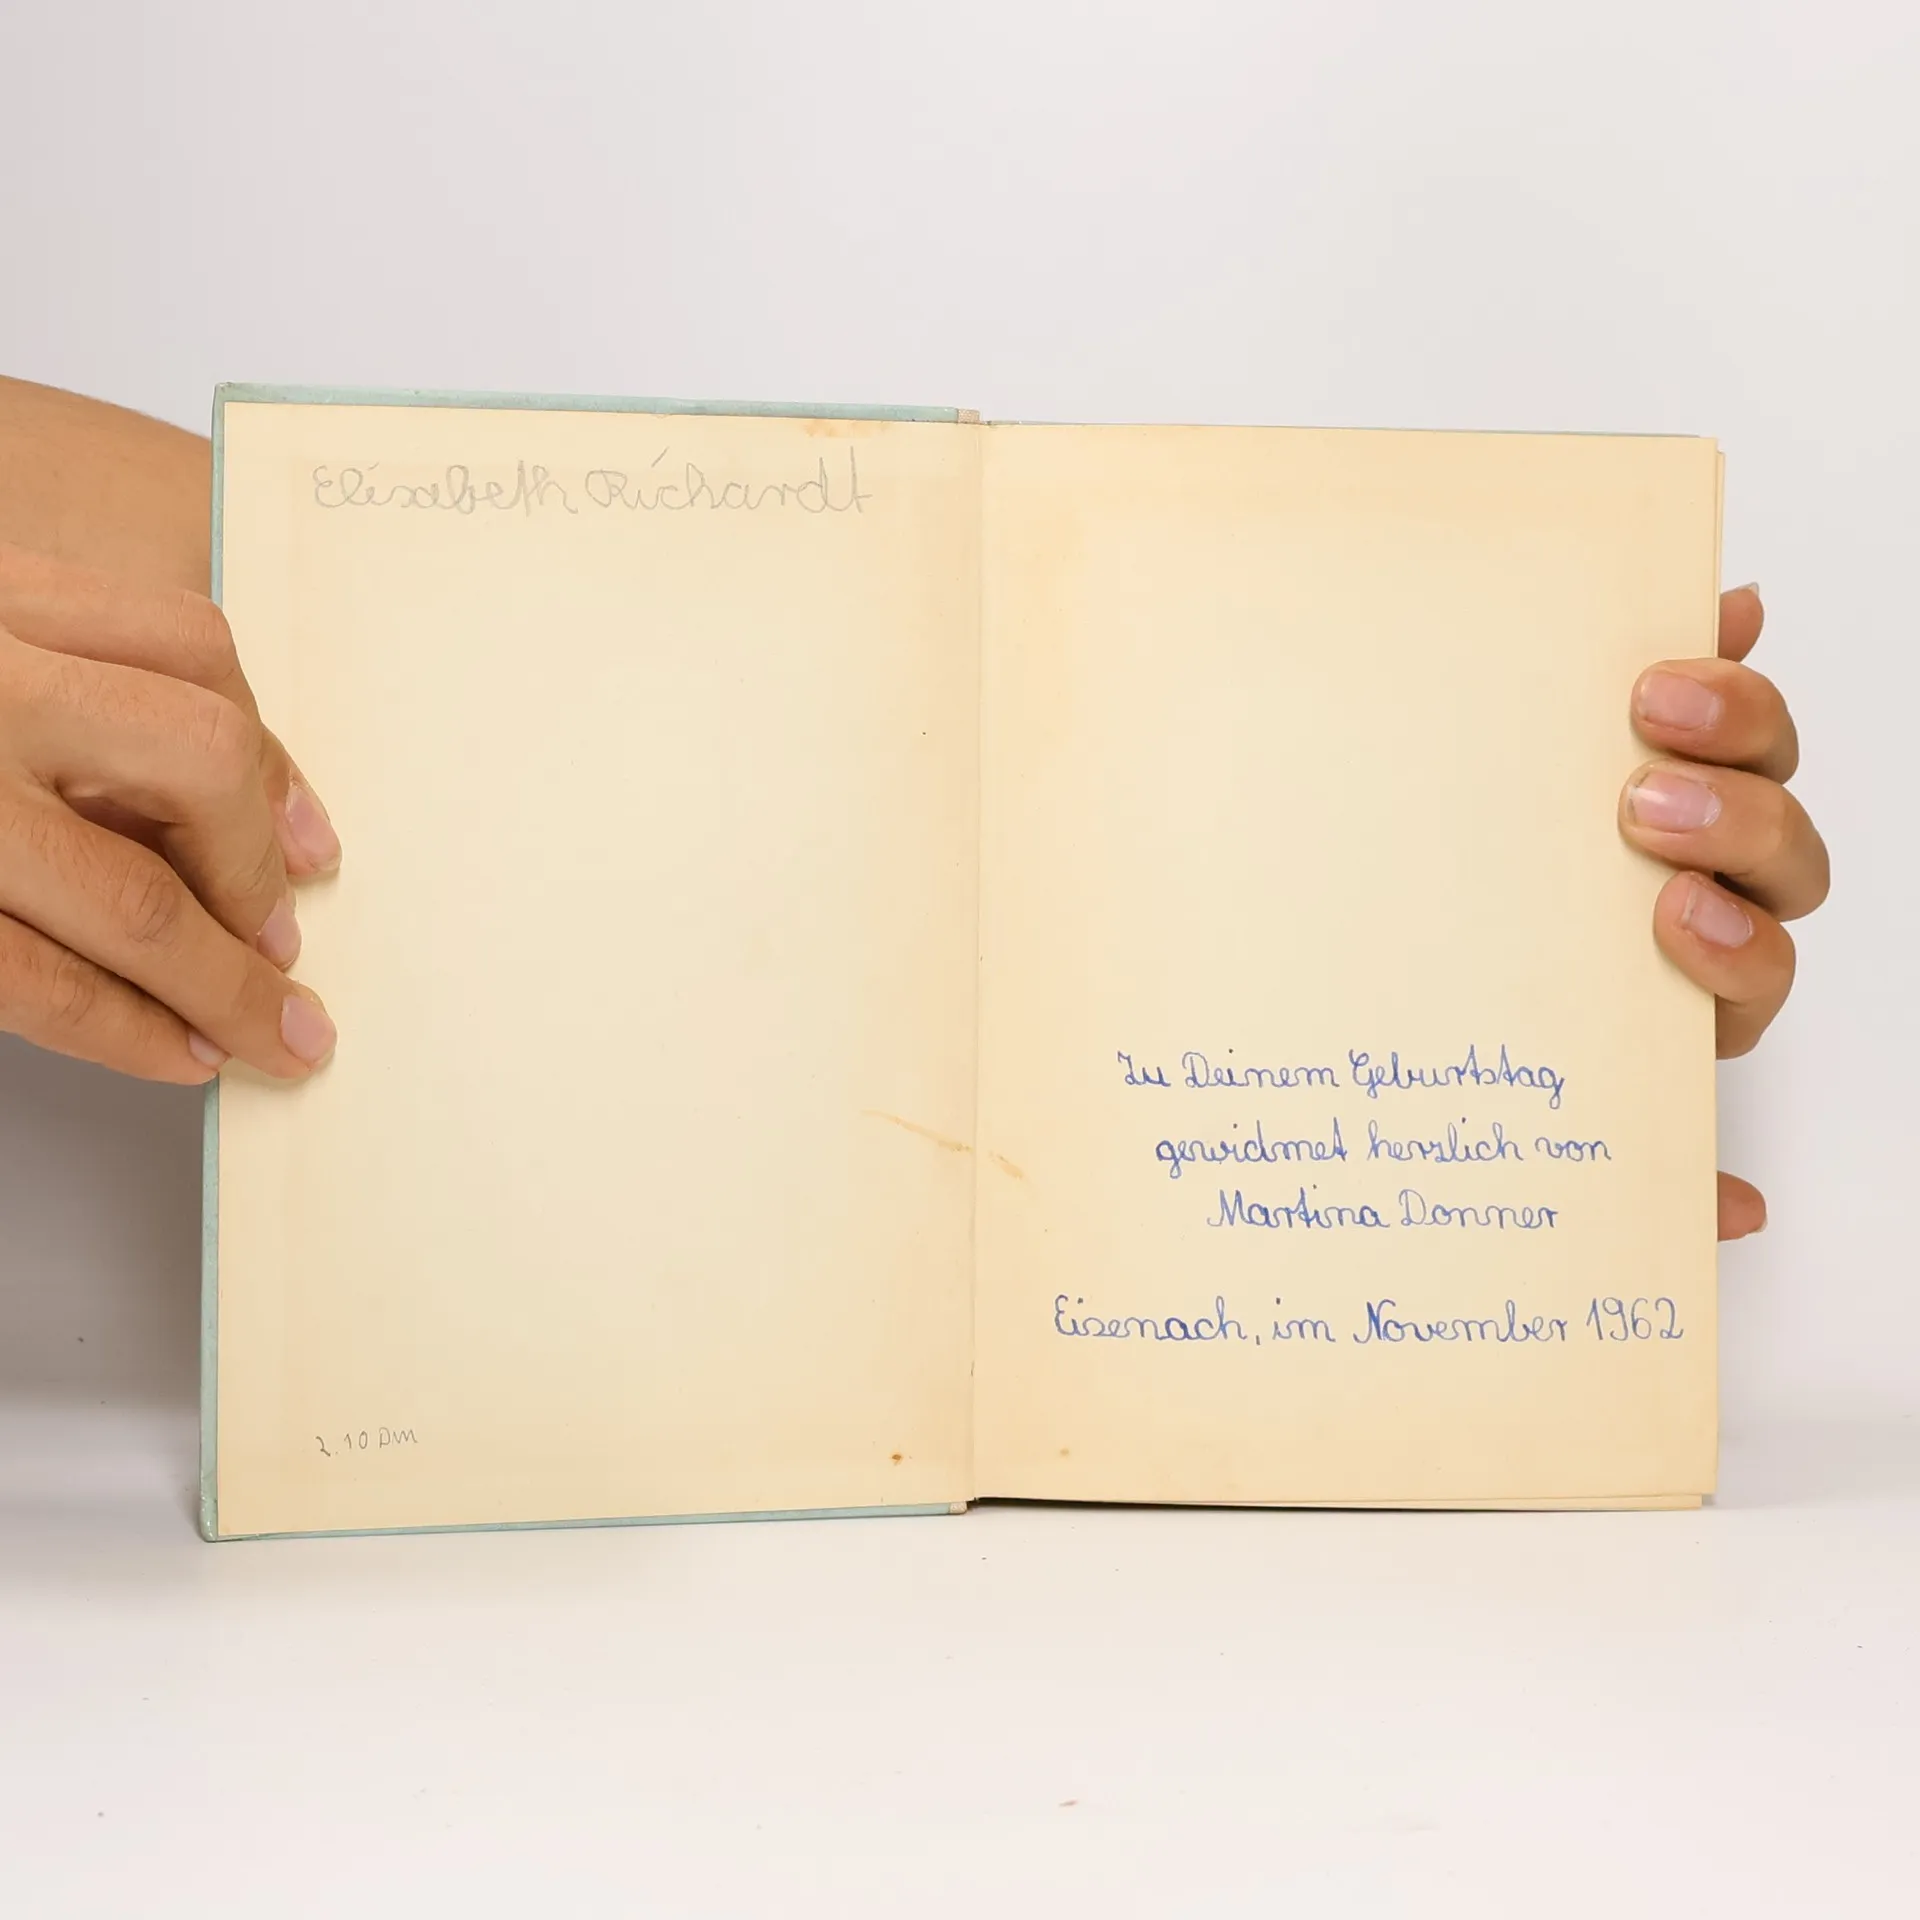 Elisabeth Richardt
2.10 Dm
Zu Deinem Geburtstag
gewidmet herzlich von
Martina Donner
Eisenach, im November 1962